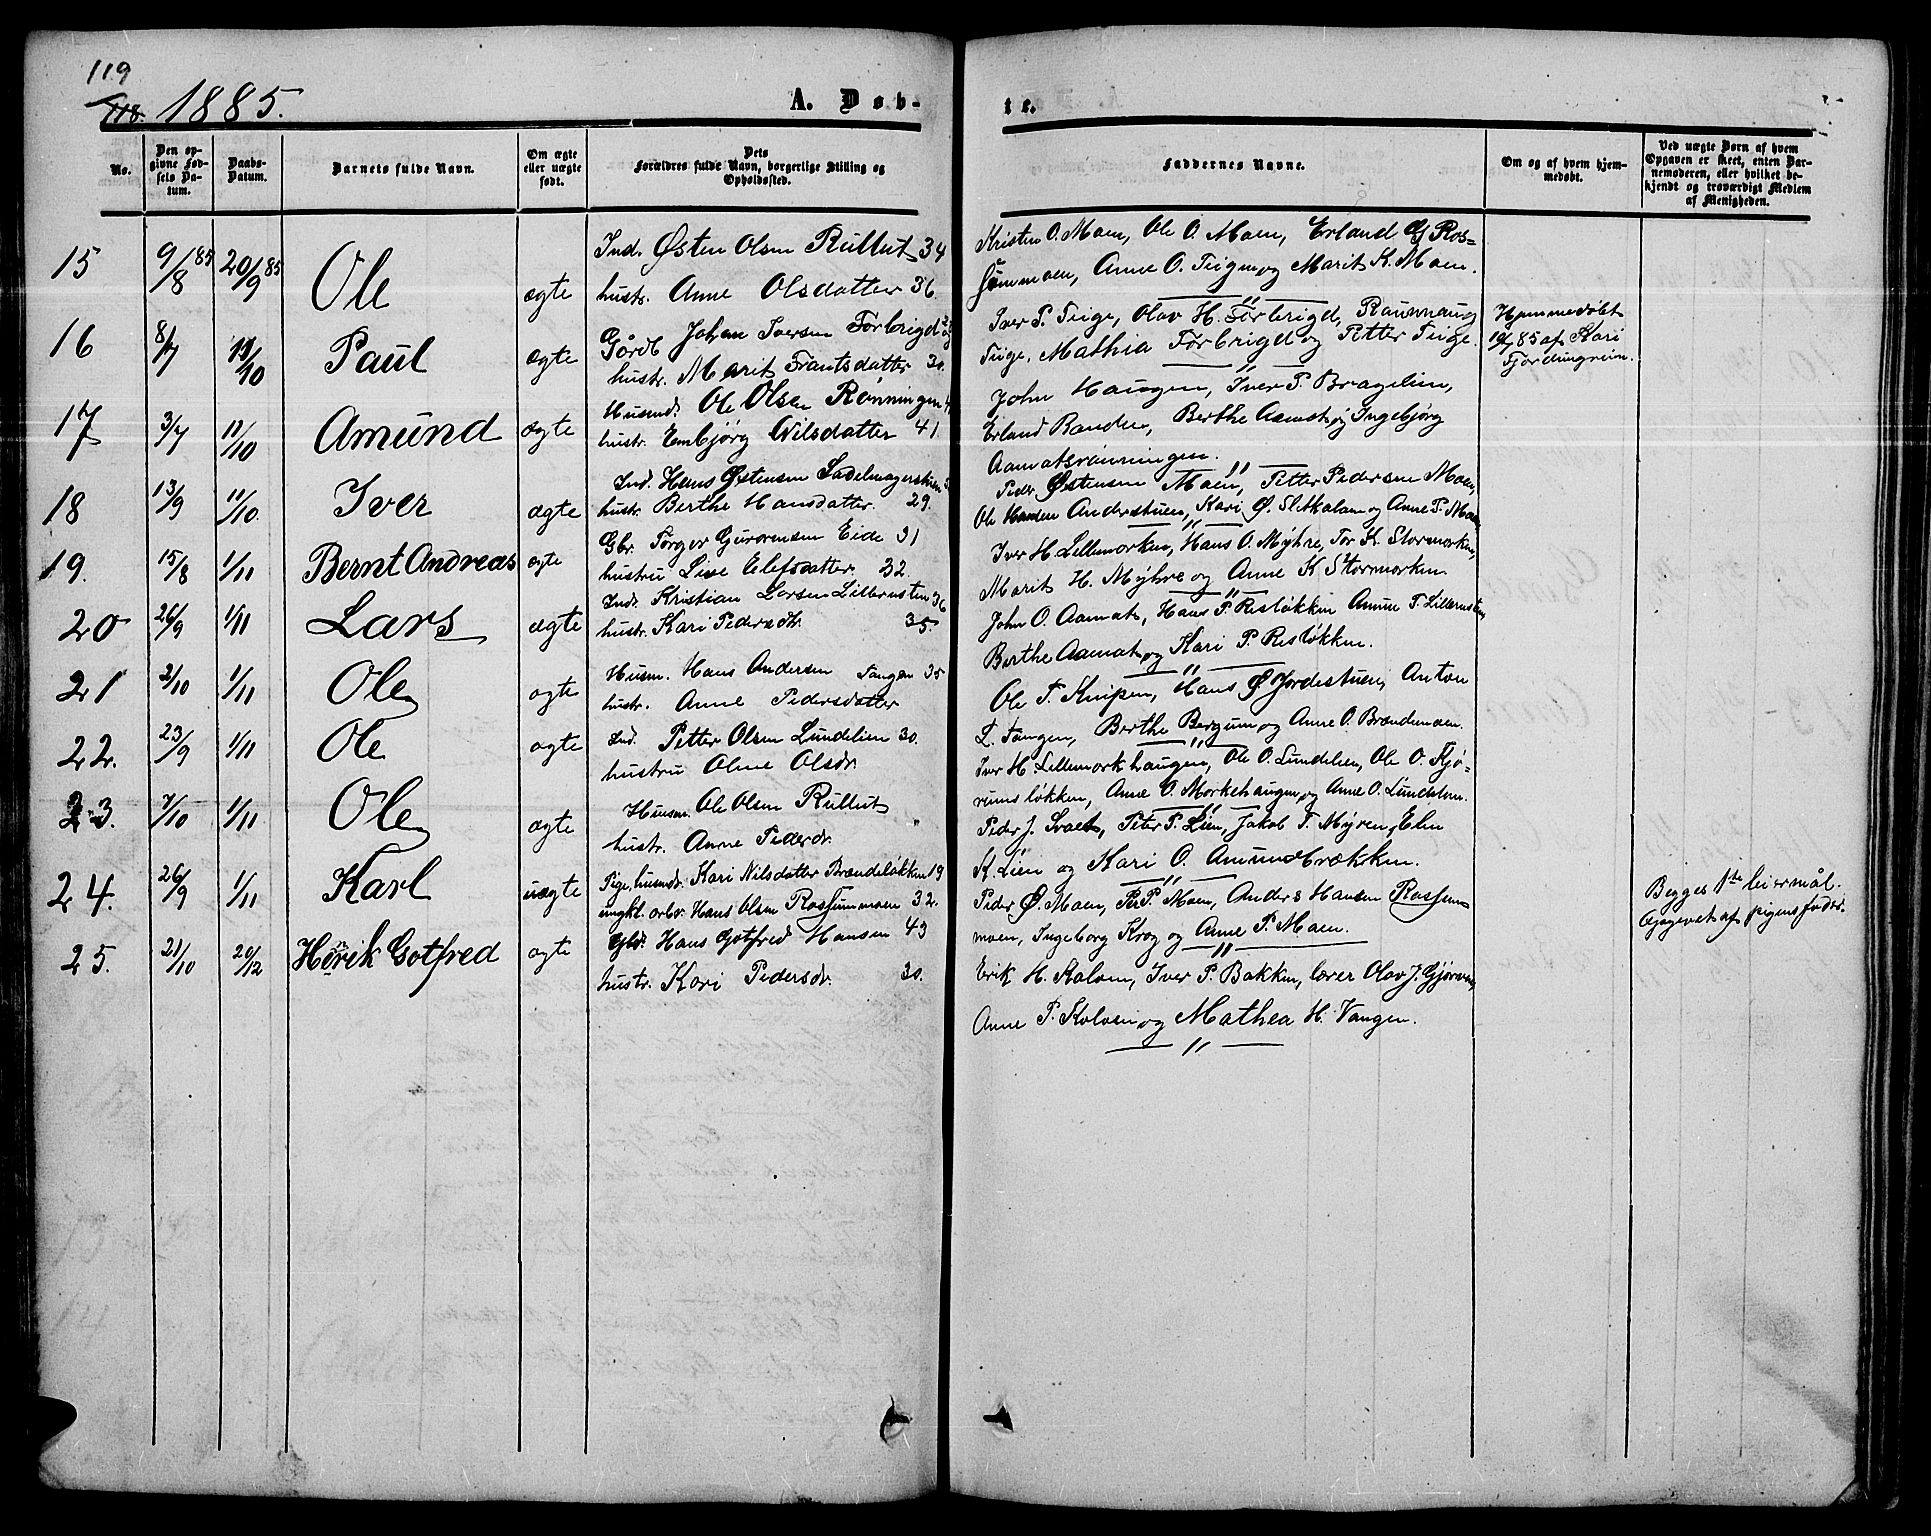 119
118. 1885.
A. Døb-
te.
No.
Den op-
givne Fød-
sels Da-
tum.
Daabs-
Datum.
Barnets fulde Navn.
Om ægte
eller uægte
født.
Dets
Forældres fulde Navn, borgerlige Stilling og
Opholdssted.
Faddernes Navne.
Om og af hvem hjem-
medøbt.
Ved uægte Børn af hvem
Opgaven er skeet, enten Bar-
nemoderen, eller hvilket be-
kjendt og troværdigt Medlem
af Menigheden.
15 9/8 85 20/9 85 Ole ægte
Ind. Østen Olsen Rullut 34
hustr. Anne Olsdatter 36.
Kristen O. Moen, Ole O. Moen, Erland Ros-
summoen, Anne O. Teigen og Marit K. Moen.
16 8/7 11/10 Paul ægte
Gårdb Johan Iversen Førbrigd
hustr. Marit Frantsdatter 30.
Iver P. Teige, Olav H. Førbrigd, Raunnaug
Teige, Mathia Førbrigd og Petter Teige.
Hjemmedøbt
85 af Kari
Fjordingreim.
17 3/7 11/10 Amund ægte
Husmd. Ole Olsen Rønningen
hustr. Embjørg Nilsdatter 41.
John Haugen, Iver P. Bragelien,
Erland Randen, Berthe Aamot og Ingebjørg
Aamotsrønningen.
18 13/9 11/10. Iver ægte
Ind. Hans Østensen Sadelmagerstuen
hustr. Berthe Hansdatter. 29.
Peder Østensen Moen, Petter Pedersen Moen,
Ole Hansen Andrestuen, Kari Ø. Sletkolen og Anne P. Moen
19. 15/8 1/11 Bernt Andreas ægte
Gbr. Torger Guvorensen Eide 31
hustru Lise Elefsdatter 32.
Iver H. Lillemorken, Hans O. Myhre, Tor K. Stormorken,
Marit H. Myhre og Anne K Stormorken
20 26/9 1/11 Lars ægte
Ind. Kristian Larsen Lillernsten 36
hustr. Kari Pedersdtr. 35.
John O. Aamot, Hans P. Risløkken Amund T. Lillernsten,
Berthe Aamot og Kari P. Risløkken.
21 2/10 1/11 Ole ægte
Husm. Hans Andersen Tangen 35
hustr. Anne Pedersdatter
Ole T. Knipen, Hans Ø Jordestuen, Anton
L. Tangen, Berthe Bergum og Anne O. Brændemoen.
22. 23/9 1/11 Ole ægte
Ind. Petter Olsen Lundelien 30.
hustru Olme Olsdr.
Iver H. Lillemorkhaugen, Ole O. Lundelien, Ole O. Kjø-
rumsløkken, Anne O. Morkehaugen og Anne O. Lundelien.
23. 7/10 1/11 Ole ægte
Husm. Ole Olsen Rullut
hustr. Anne Pedersdr.
Peder J. Svaet, Peter P. Lien, Jakob T. Myren, Elen
K. Lien og Kari O. Amundbrækken.
24. 26/9 1/11 Karl uægte
Pige, husmdr. Kari Nilsdatter Brændeløkken 19
ungkl. arbr. Hans Olsen Rossummoen 32.
Peder Ø. Moen, Per P. Moen, Anders Hansen Rossum
moen, Ingeborg Krog og Anne P. Moen.
Begges 1ste leiermål.
Opgivet af pigens fader.
25. 21/10 20/12 Henrik Gotfred ægte
Gbr. Hans Gotfred Hansen 43
hustr. Kari Pedersdr. 30.
Erik H. Kolven, Iver P. Bakken, lærer Olav J. Gjørven,
Anne P. Kolven og Mathea H. Vangen.